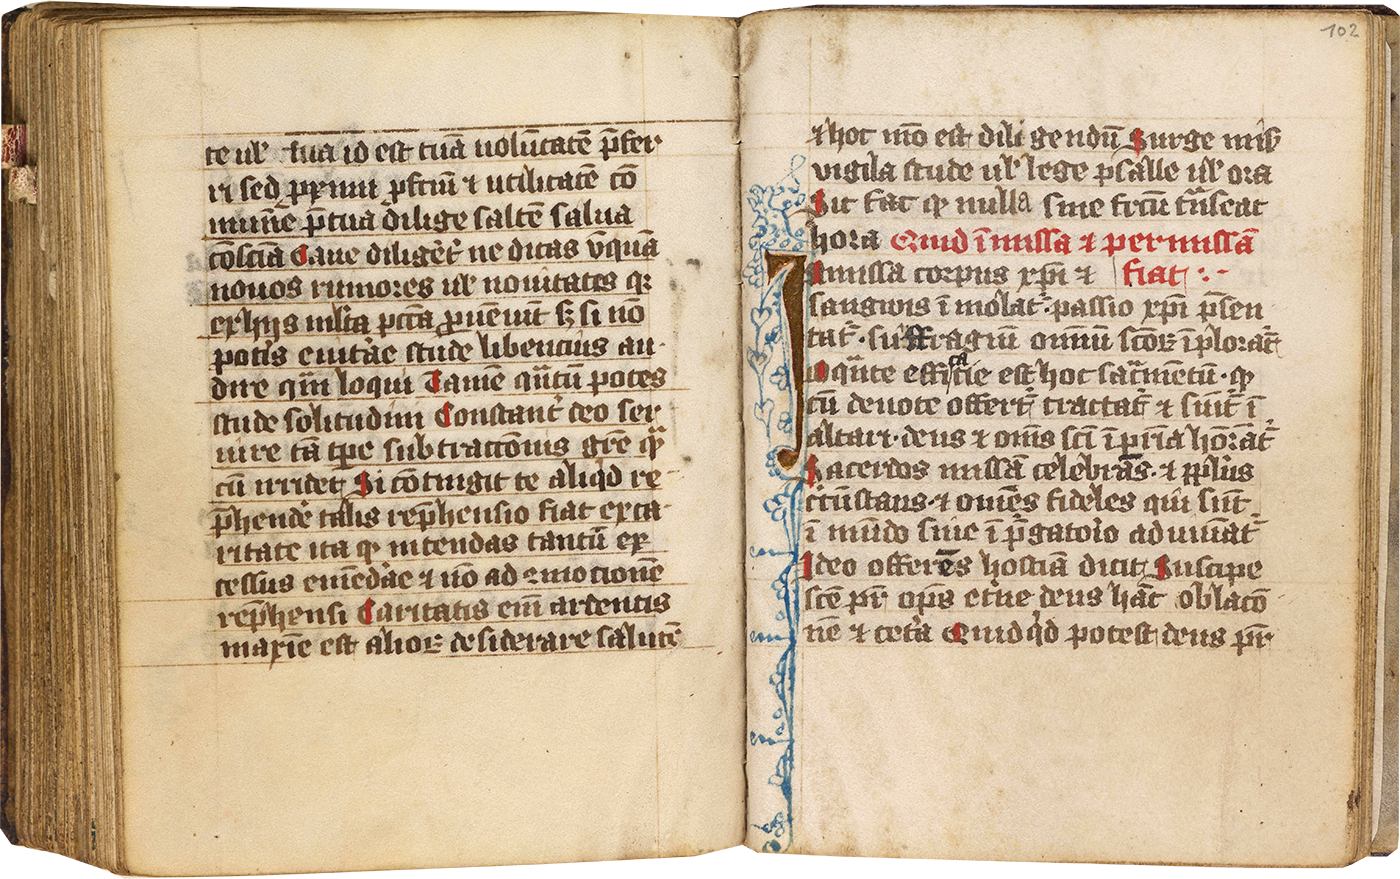 te ul̄ tua id est tuā uolūtatē p̄fer
ri sed ꝓximi ꝓfctū ⁊ utilitatē cō
mūnē p̄ tua dilige saltē salua
cōsciā Caue diligēt᷑ ne dicas v̄quā
nouos rumores ul̄ nouitates qꝛ
ex hijs ml̄ta pctā ꝓueniūt sꝫ si nō
potis euitāe stude libencius au-
dire qͣm loqui Tamē qͣtū potes
stude solitudini Constant᷑ deo ser
uire tā tꝑe subtractōnis grē qͣ
cū arridet Si cōtingit te aliqͥd re
p̄hendē talis rep̄hensio fiat ex ca-
ritate ita ꝙ intendas tantū ex
cessus emēdāe ⁊ nō ad ꝯmotionē
rep̄hensi Caritatis em̄ ardentis
maxīe est alioꝝ desiderare salutē
102
⁊ hoc mō est diligendū Surge mis
vigila stude ul̄ lege psalle ul̄ ora
Sic fac ꝙ nulla sine frcū trͣnseat
hora Quid ī missa ⁊ per missā
fiat
In missa corpus xp̄i ⁊
sangwis īmolat᷑ · passio xp̄i p̄sen
tat᷑ · suffragiū omniū scōꝝ īplorat᷑
effi cacie est hoc sacͬmētū · ꝙ
cū deuote offert᷑ tractat᷑ ⁊ sumit᷑ ī
altari · deus ⁊ om̄s sc̄i ī pr̄ia honorāt᷑
Sacerdos missā celebrās · ⁊ ꝓplūs
circūstans · ⁊ omnēs fideles qui sūt
ī mūdo siue ī pͥgatorio adiuuāt᷑
Ideo offerēs hostiā dicit Suscipe
scē pr̄ om̄ps et̄ne deus hāc oblacō
nē ⁊ cetͣa Quidqͥd potest deus pr̄